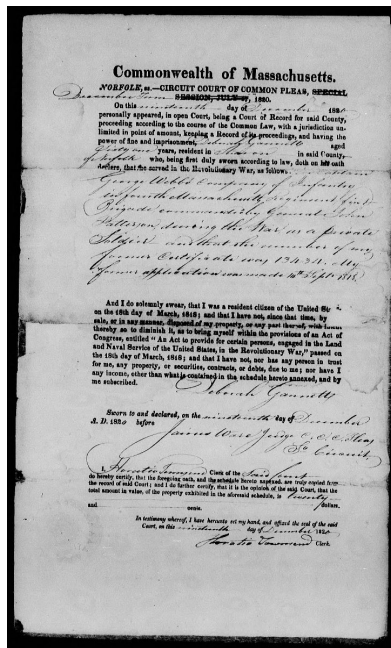 Commonwealth of Massachusetts.
NORFOLK, ss.—CIRCUIT COURT OF COMMON PLEAS, SPECIAL
December Term SESSION, JULY 1820.
On this nineteenth day of December 1820
personally appeared, in open Court, being a Court of Record for said County,
proceeding according to the course of the Common Law, with a jurisdiction un-
limited in point of amount, keeping a Record of its proceedings, and having the
power of fine and imprisonment, Deborah Gannett aged
years, resident in Sharon in said County,
of Norfolk who, being first duly sworn according to law, doth on her oath
declare, that she served in the Revolutionary War, as follows
George Webb's Company of Infantry
in fourth Massachusetts Regiment first
Brigade commanded by General John
Patterson during the War as a private
Soldier and that the number of my
former Certificate was 13434. My
former application was made 14th Sept. 1818.
And I do solemnly swear, that I was a resident citizen of the United States
on the 18th day of March, 1818; and that I have not, since that time, by
sale, or in any manner, disposed of my property, or any part thereof, with intent
thereby so to diminish it, as to bring myself within the provisions of an Act of
Congress, entitled "An Act to provide for certain persons, engaged in the Land
and Naval Service of the United States, in the Revolutionary War," passed on
the 18th day of March, 1818; and that I have not, nor has any person in trust
for me, any property, or securities, contracts, or debts, due to me; nor have I
any income, other than what is contained in the schedule hereto annexed, and by
me subscribed.
Deborah Gannett
Sworn to and declared, on the nineteenth day of December
A. D. 1820 before
James Ware Judge C. C. C. Pleas
So Circuit
I, Horatio Townsend Clerk of the Said Court
do hereby certify, that the foregoing oath, and the schedule hereto annexed, are truly copied from
the record of said Court; and I do further certify, that it is the opinion of the said Court, that the
total amount in value, of the property exhibited in the aforesaid schedule, is twenty
dollars,
and cents.
In testimony whereof, I have hereunto set my hand, and affixed the seal of the said
Court, on this nineteenth day of December 1820
Horatio Townsend Clerk.